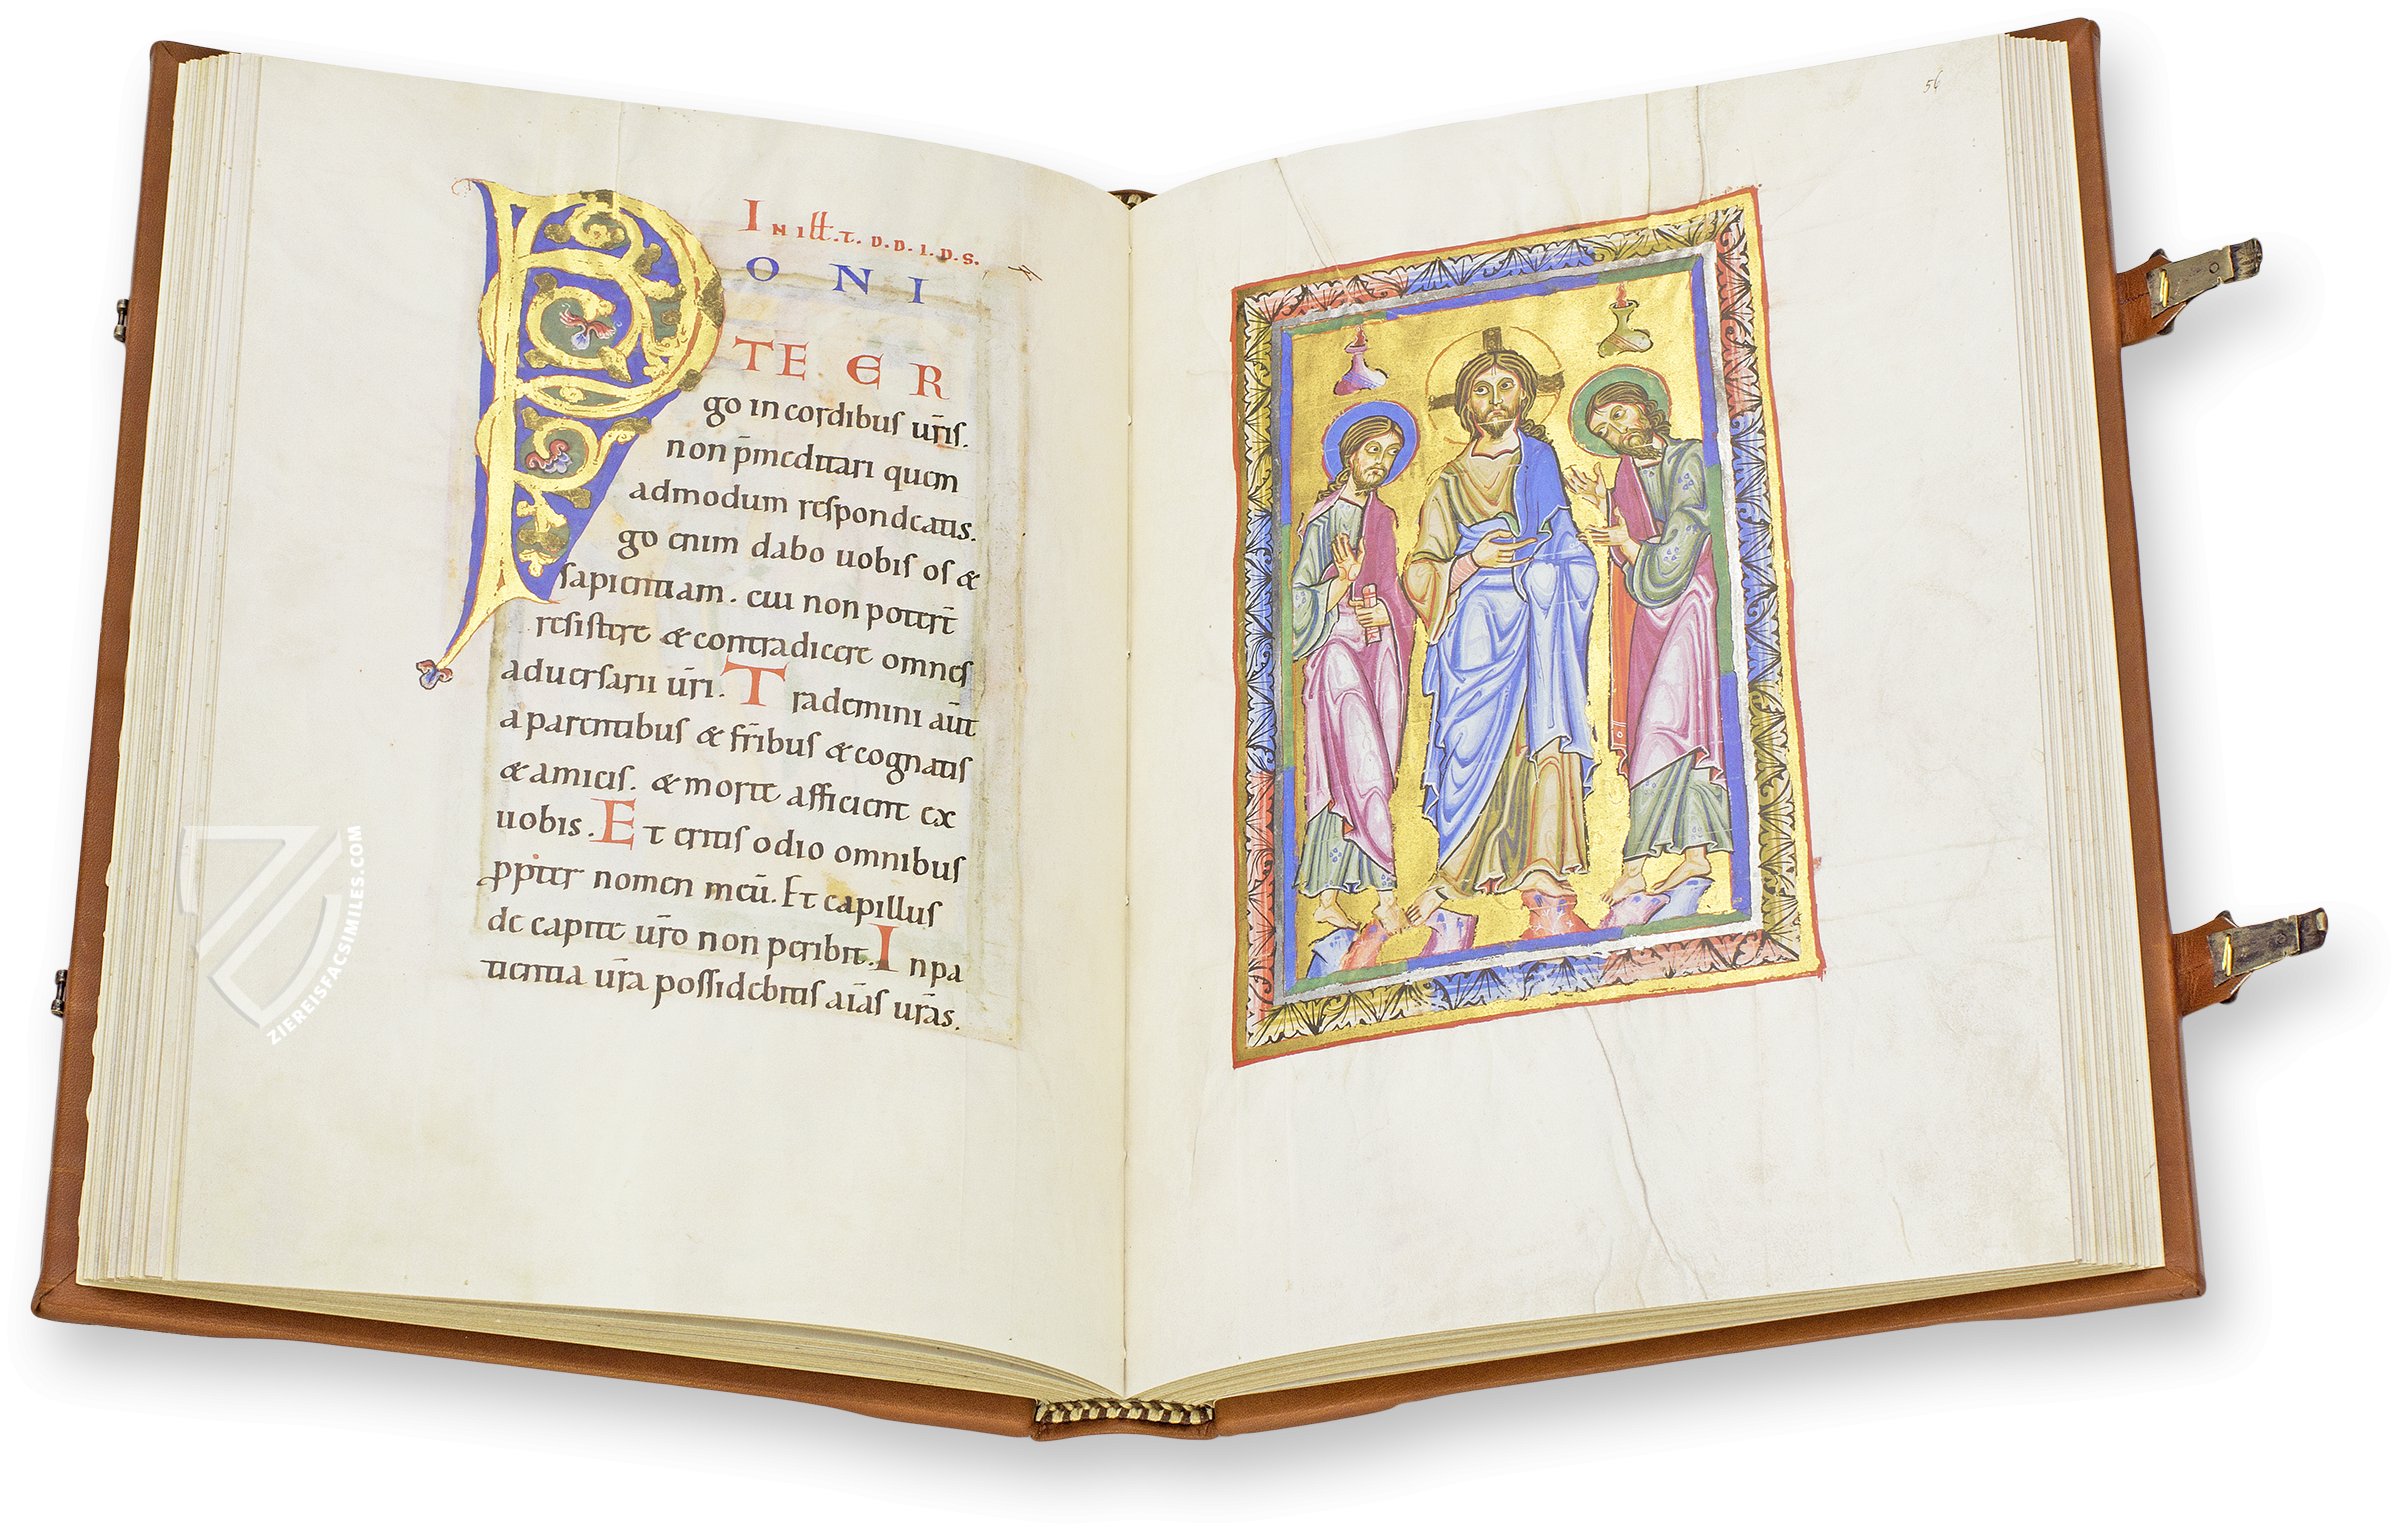 IN iłł.t. D.D.I.D.S.
PONI
TE ER
go in cordibus ur̄is.
non p̄meditari quem
admodum respondeatis.
go enim dabo uobis os &
sapientiam. cui non poter̄t
resistere & contradicere omnes
aduersarii ur̄i. Trademini aūt
a parentibus & fr̄ibus & cognatis
& amicis. & morte afficient ex
uobis. Et eritis odio omnibus
ꝓpter nomen meū. Et capillus
de capite ur̄o non peribit. In pa
tientia ur̄a possidebitis aīas ur̄as.
56
ZIEREISFACSIMILES.COM